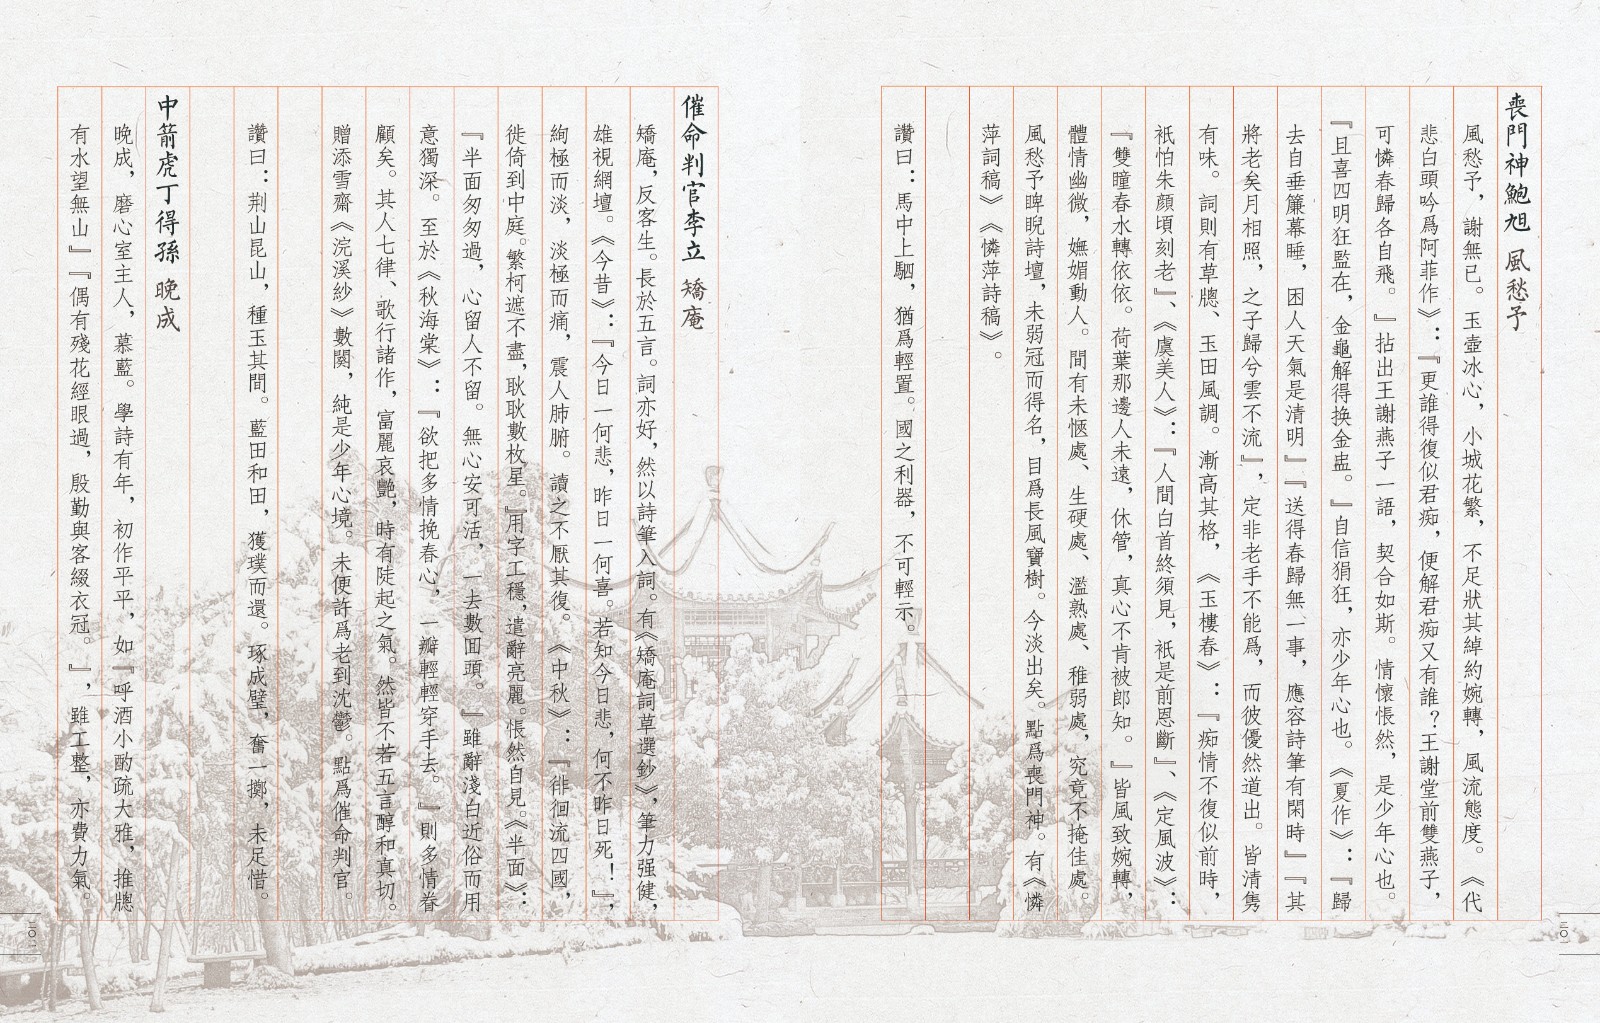 喪門神鮑旭 風愁予
風愁予，謝無已。玉壺冰心，小城花繁，不足狀其綽約婉轉，風流態度。《代
悲白頭吟爲阿菲作》：『更誰得復似君痴，便解君痴又有誰？王謝堂前雙燕子，
可憐春歸各自飛。』拈出王謝燕子一語，契合如斯。情懷悵然，是少年心也。
『且喜四明狂監在，金龜解得換金盅。』自信狷狂，亦少年心也。《夏作》：『歸
去自垂簾幕睡，困人天氣是清明』『送得春歸無一事，應容詩筆有閑時』『其
將老矣月相照，之子歸兮雲不流』，定非老手不能爲，而彼優然道出。皆清雋
有味。詞則有草牕、玉田風調。漸高其格，《玉樓春》：『痴情不復似前時，
祇怕朱顔頃刻老』、《虞美人》：『人間白首終須見，祇是前恩斷』、《定風波》：
『雙瞳春水轉依依。荷葉那邊人未遠，休管，真心不肯被郎知。』皆風致婉轉，
體情幽微，嫵媚動人。間有未愜處、生硬處、濫熟處、稚弱處，究竟不掩佳處。
風愁予睥睨詩壇，未弱冠而得名，目爲長風寶樹。今淡出矣。點爲喪門神。有《憐
萍詞稿》《憐萍詩稿》。
讚曰：馬中上駟，猶爲輕置。國之利器，不可輕示。
催命判官李立 矯庵
矯庵，反客生。長於五言。詞亦好，然以詩筆入詞。有《矯庵詞草選鈔》，筆力强健，
雄視網壇。《今昔》：『今日一何悲，昨日一何喜。若知今日悲，何不昨日死！』，
絢極而淡，淡極而痛，震人肺腑。讀之不厭其復。《中秋》：『徘徊流四國，
徙倚到中庭。繁柯遮不盡，耿耿數枚星。』用字工穩，遣辭亮麗。悵然自見。《半面》：
『半面匆匆過，心留人不留。無心安可活，一去數回頭。』雖辭淺白近俗而用
意獨深。至於《秋海棠》：『欲把多情挽春心，一瓣輕輕穿手去。』則多情眷
顧矣。其人七律、歌行諸作，富麗哀艷，時有陡起之氣。然皆不若五言醇和真切。
贈添雪齋《浣溪紗》數闋，純是少年心境。未便許爲老到沈鬱。點爲催命判官。
讚曰：荆山昆山，種玉其間。藍田和田，獲璞而還。琢成璧，奮一擲，未足惜。
中箭虎丁得孫 晚成
晚成，磨心室主人，慕藍。學詩有年，初作平平，如『呼酒小酌疏大雅，推牕
有水望無山』『偶有殘花經眼過，殷勤與客綴衣冠。』，雖工整，亦費力氣。